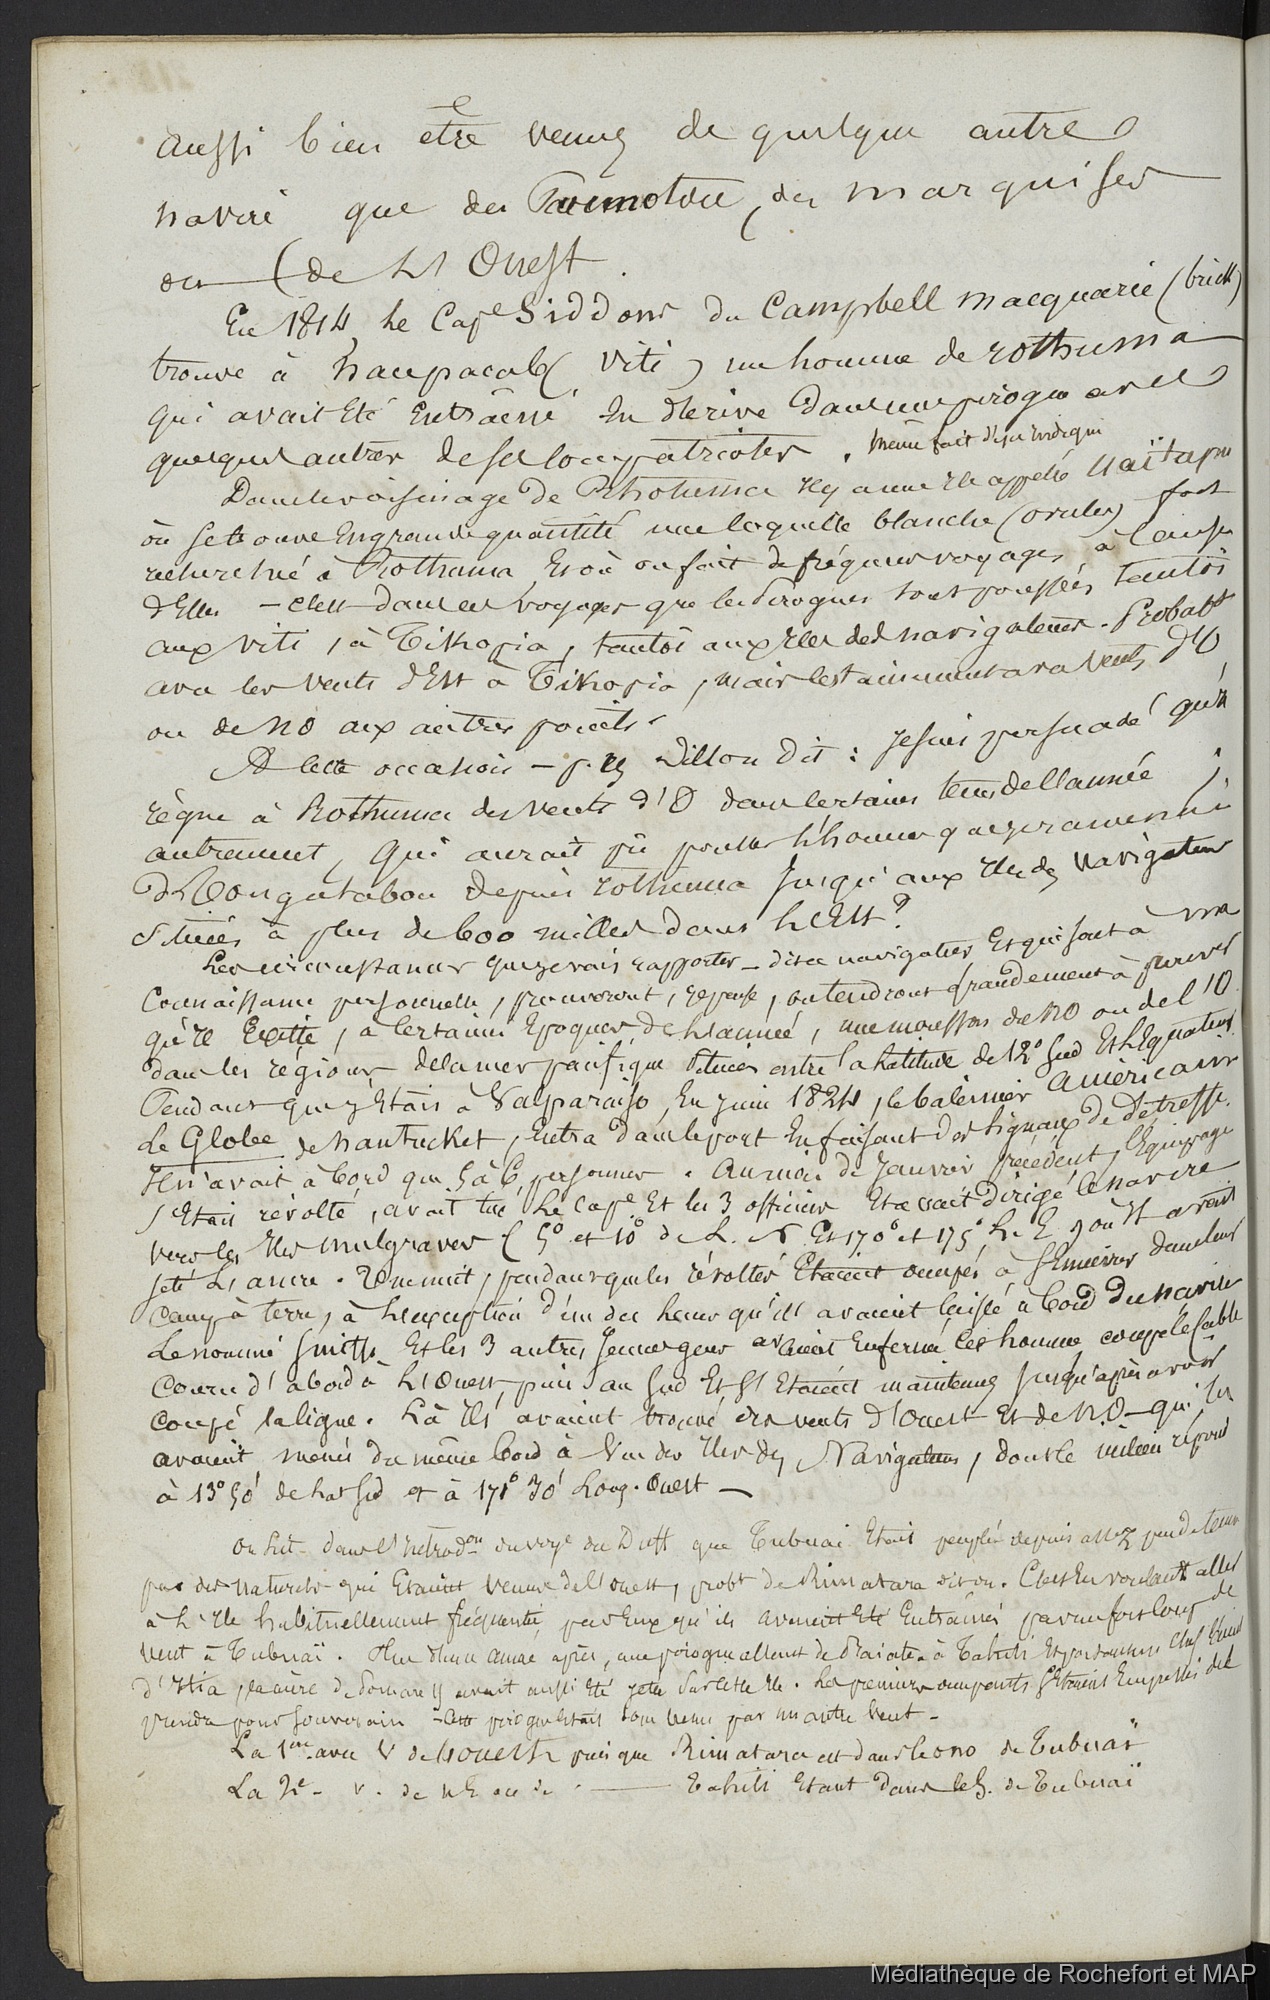 aussi bien etre venues de quelque autre
navire que des Paumotou, des marquises
ou (de L'Ouest.
En 1814, le Cape Siddons du Campbell macquarie (brick)
trouve à haupacab( Viti) un homme de rothuma
qui avait Eté Entrainé En derive dans une pirogue avec
quelques autres de ses compatriotes. même fait
Dans le voisinage de Rhotuma il y a une Ile appelée Vaïtapu
où se trouve En grande quantité une coquille blanche (ovules) fort
recherchée à Rothuma Et où on fait de fréquens voyages à cause
d'Elles - c'est dans ces voyages que les Pirogues sont poussées tantôt
aux viti, à Tikopia, tantôt aux Iles des navigateurs. Probabt
avec les vents d'Est à Tikopia, mais certainement avec vents d'O
ou de NO aux autres points.
A cette occasion - p. Dillon dit : Je suis persuadé qu'il
règne à Rothuma des vents d'O dans certains tems de l'année ;
autrement, qui aurait pû pousser l'homme que je ramenai
de Tongatabou depuis rothuma jusqu'aux Iles des Navigateurs
situées à plus de 600 milles dans L'Est ?
Les circonstances que je vais rapporter - dit ce navigateur Et qui sont à ma
Connaissance personnelle, prouveront, je pense, ou tendront grandement à prouver
qu'il Existe, à certaines Epoques de L'année, une mousson de NO ou de l'O.
dans les régions de la mer pacifique situées entre la Latitude de 12° Sud Et L'Equateur.
Pendant que j'Etais à Valparaiso, En juin 1824, le baleinier Américain
Le Globe de Nantucket, Entra dans le port En faisant des signaux de détresse.
Il n'avait à bord que 5 à 6 personnes. Au mois de Janvier précédent, l'équipage
s'Etait révolté, avait tué Le Cape Et les 3 officiers Et avait dirigé le navire
vers les Iles mulgraves (5° et 10° de L. N. Et 170° et 175° L. E.) où Il avait
jeté L'ancre. Une nuit, pendant que les révoltés Etaient occupés à s'Enivrer dans leur
camp à terre, à L'exception d'un des leurs qu'ils avaient laissé à bord du navire
Le nommé Smith Et les 3 autres jeunes gens avaient Enfermé cet homme coupé le câble
Couru d'abord à L'Ouest, puis au Sud Et S'Etaient maintenus jusqu'après avoir
coupé la ligne. Là Ils avaient trouvé des vents d'Ouest Et de N.O - qui les
avaient menés du même bord à Vue des Iles des Navigateurs, dont le milieu répond
à 13° 50' de Lat Sud et à 171° 30' Long. Ouest -
On Lit dans l'introdon du voye du Duff que Tubuai Etait peuplé depuis assez peu de tems
par des naturels qui Etaient venus de l'ouest, probt de Rimatara dit on. C'est En voulant aller
à L'Ile habituellement fréquentée par Eux qu'ils avaient Eté Entrainés par un fort coup de
vent à Tubuaï. une année après, une pirogue allant de Raiatea à Tahiti
d'Itia, la mère de Pomare avait aussi Eté jetée sur cette Ile. Les premiers occupants s'Etaient Empressés de le
prendre pour souverain - Cette pirogue était donc venue par un autre vent -
La 1ere avec V de l'ouest puisque Rimatara est dans le ono de Tubuaï
La 2e - v. de NE ou de . — Tahiti Etant dans le de Tubuaï
Médiathèque de Rochefort et MAP